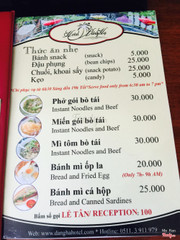 Thức ăn nhẹ
Bánh snack (snack) 5.000
Đậu phụng (bean chips) 25.000
Chuối, khoai sấy (snack potato) 25.000
Kẹo (candy) 5.000
Phở gói bò tái 30.000
Instant Noodles and Beef
Miến gói bò tái 30.000
Instant Noodles and Beef
Mì tôm bò tái 30.000
Instant Noodles and Beef
Bánh mì ốp la 20.000
Bread and Fried Egg (Only 7h- 9h AM)
Bánh mì cá hộp 25.000
Bread and Canned Sardines
Bấm số gọi LỄ TÂN/RECEPTION: 100
www.dangphahotel.com * Hotline: 0511. 3 911 979